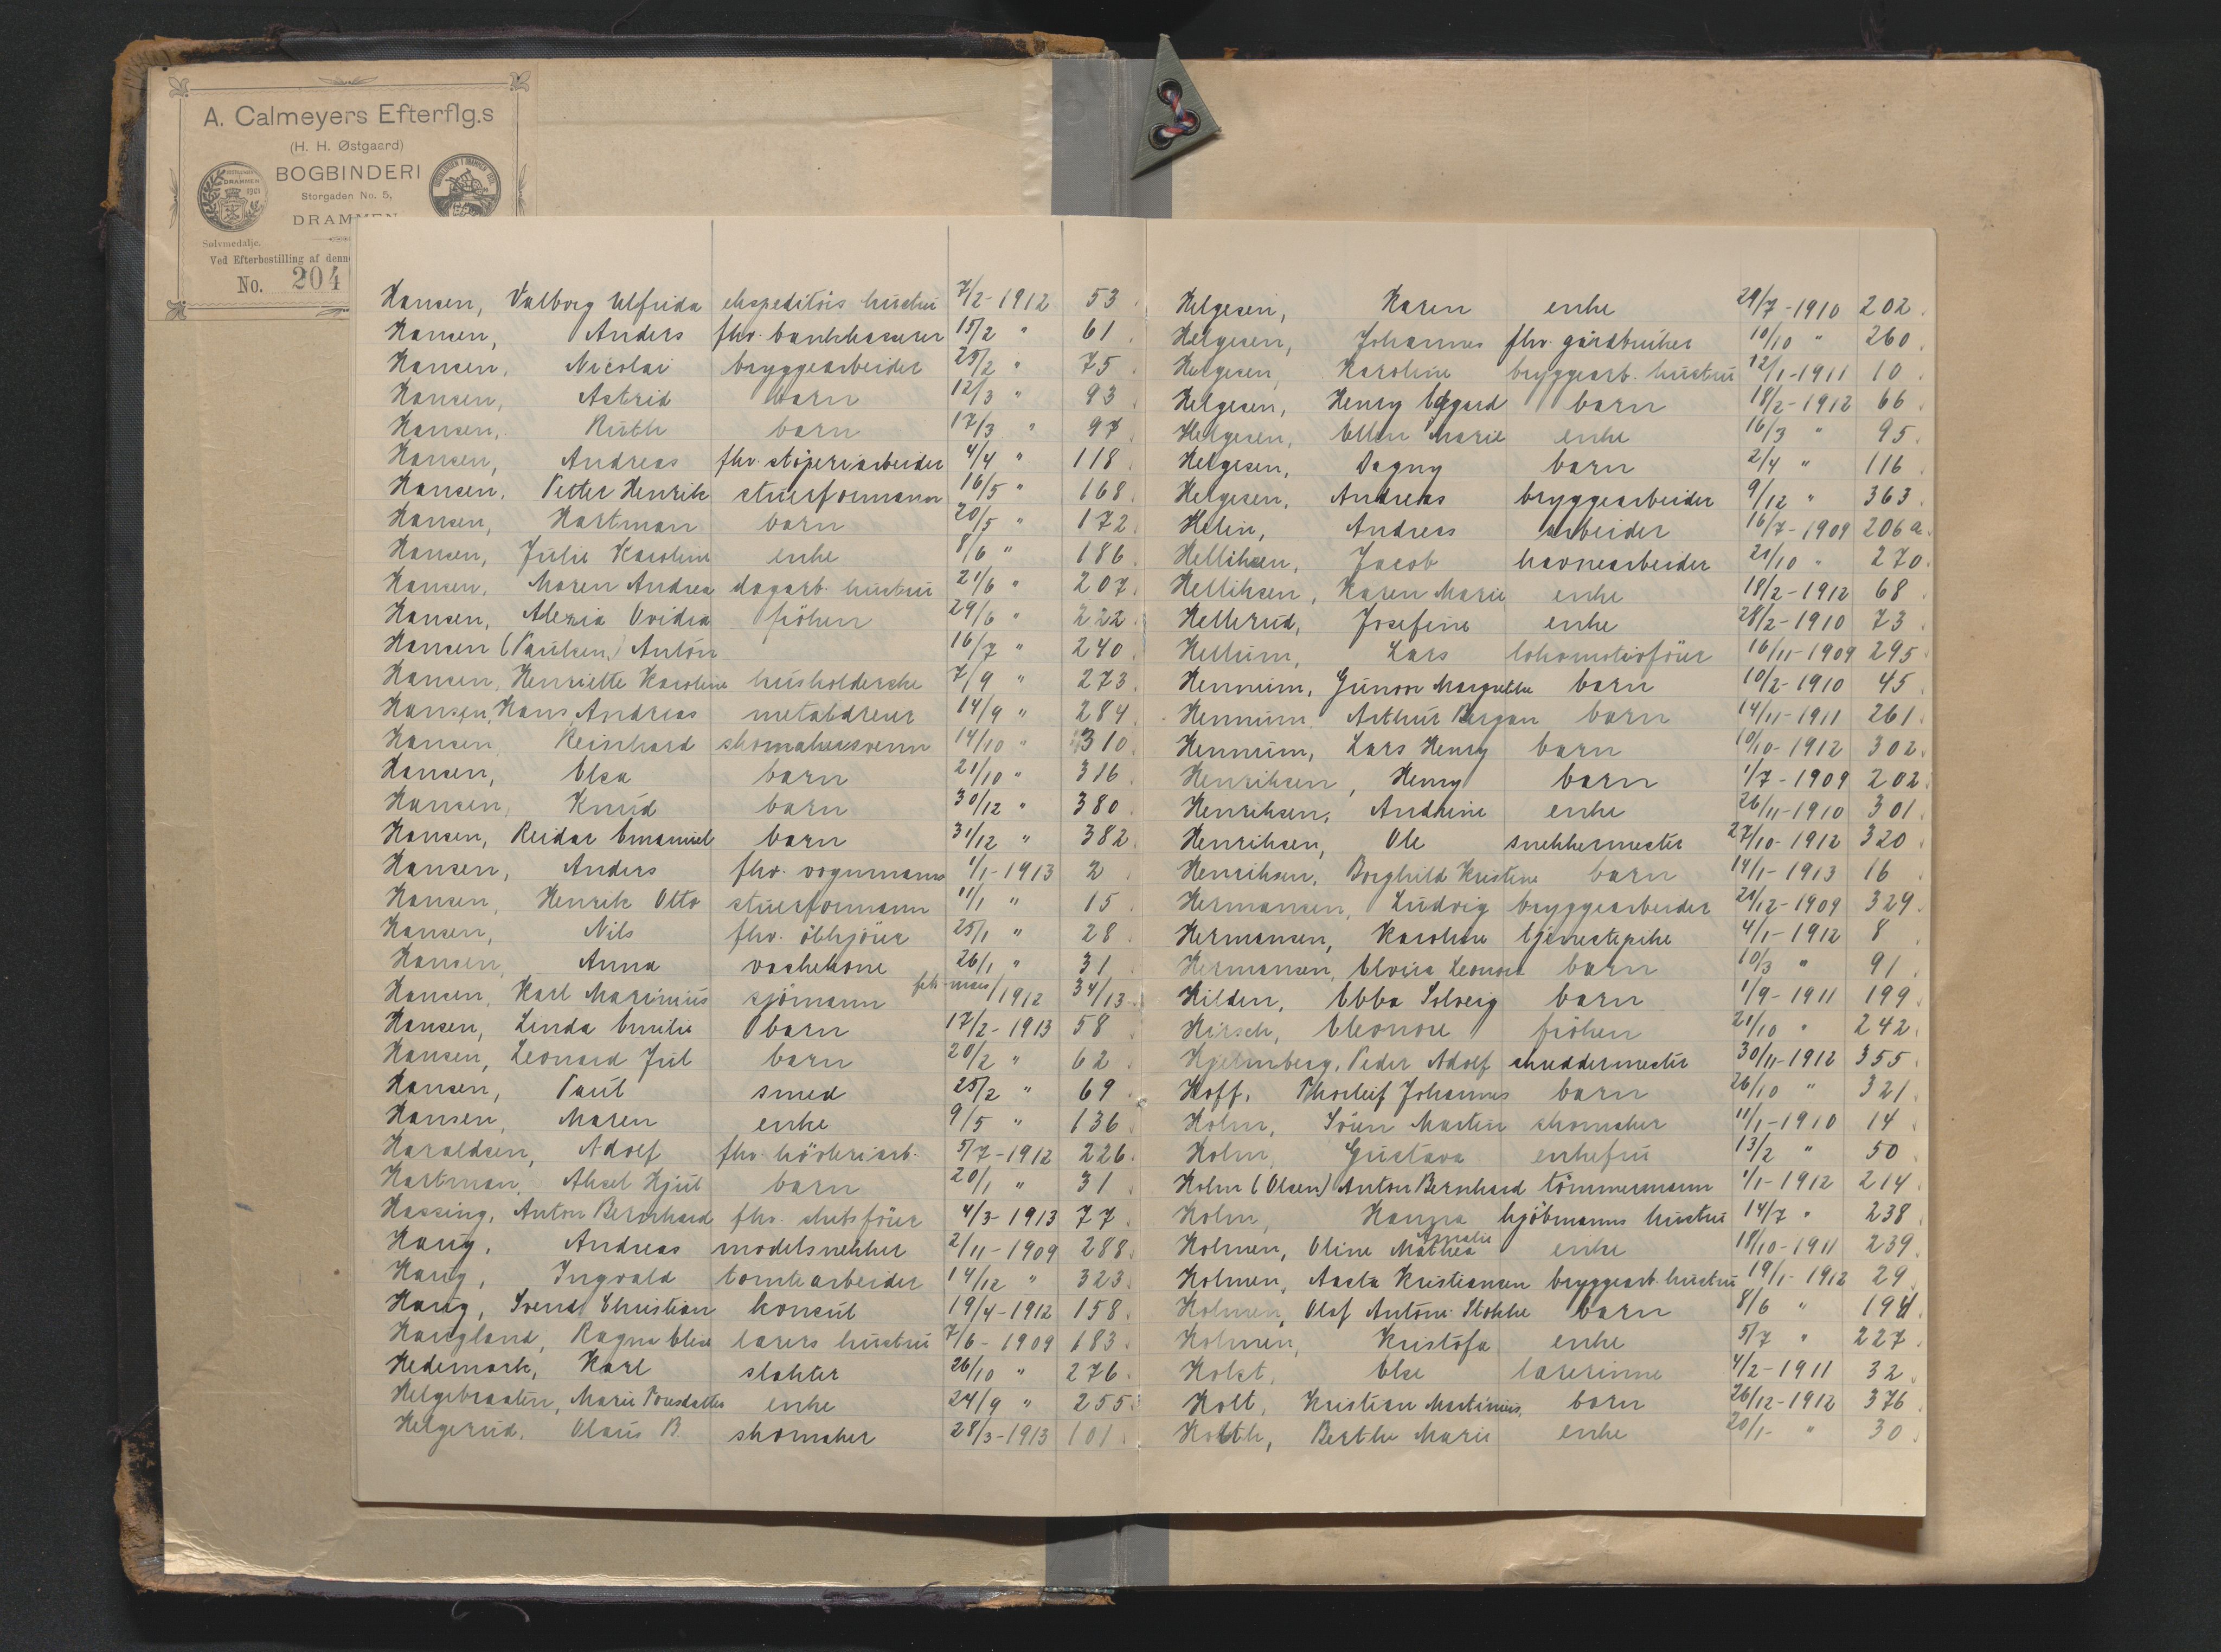 A. Calmeyers Efterflg.s
(H. H. Østgaard)
BOGBINDERI
Storgaden No. 5,
DRAMMEN
Sølvmedalje.
Ved Efterbestilling af denn
No. 204
Hansen, Valborg Alfrida ekspeditörs hustru 7/2-1912 53.
Hansen, Anders fhv. bankkasserer 15/2 " 61.
Hansen, Nicolai bryggearbeider 25/2 " 75.
Hansen, Astrid barn 12/3 " 93.
Hansen, Ruth barn 17/3 " 97.
Hansen, Andreas fhv. stöperiarbeider 4/4 " 118.
Hansen, Petter Henrik stuerformann 16/5 " 168.
Hansen, Hartman barn 20/5 " 172.
Hansen, Julie Karoline enke 8/6 " 186.
Hansen, Maren Andrea dagarb. hustru 21/6 " 207.
Hansen, Alezia Ovidia fröken 29/6 " 222.
Hansen (Paulsen,) Anton 16/7 " 240.
Hansen, Henriette Karoline husholderske 7/9 " 273.
Hansen, Hans Andreas metaldreier 14/9 " 284.
Hansen, Reinhard skomakersvenn 14/10 " 310.
Hansen, Elsa barn 21/10 " 316.
Hansen, Knud barn 30/12 " 380.
Hansen, Reidar Emanuel barn 31/12 " 382.
Hansen, Anders fhv. vognmann 1/1-1913 2.
Hansen, Henrik Otto stuerformann 11/1 " 15.
Hansen, Nils fhv. ölkjörer 25/1 " 28.
Hansen, Anna vaskekone 26/1 " 31.
Hansen, Karl Marinius sjömann feb-mars/1912 34/13.
Hansen, Linda Emilie barn 17/2-1913 58.
Hansen, Leonard Jul barn 20/2 " 62.
Hansen, Paul smed 25/2 " 69.
Hansen, Maren enke 9/5 " 136.
Haraldsen, Adolf fhv. hövleriarb. 5/7-1912 226.
Hartman, Aksel Kjul barn 20/1 " 31.
Hassing, Anton Bernhard fhv. skibsförer 4/3-1913 77.
Haug, Andreas modelsnekker 2/11-1909 288.
Haug, Ingvald tomtearbeider 14/12 " 323.
Haug, Svend Christian konsul 19/4-1912 158.
Haugland, Ragna Elise lærers hustru 7/6-1909 183.
Hedemark, Karl slakter 26/10 " 276.
Helgebraaten, Marie enke 24/9 " 255.
Helgerud, Olaus B. skomaker 28/3-1913 101.
Helgesen, Karen enke 29/7-1910 202.
Helgesen, Johannes fhv. gårdbruker 10/10 " 260.
Helgesen, Karoline bryggearb. hustru 12/1-1911 10.
Helgesen, Henry barn 18/2-1912 66.
Helgesen, Ellen Marie enke 16/3 " 95.
Helgesen, Dagny barn 2/4 " 116.
Helgesen, Andreas bryggearbeider 9/12 " 363.
Helin, Andreas arbeider 16/7-1909 206a.
Helliksen, Jacob havnearbeider 21/10 " 270.
Helliksen, Karen Marie enke 18/2-1912 68.
Hellerud, Josefine enke 28/2-1910 73.
Hellum, Lars lokomotivförer 16/11-1909 295.
Hennum, Gunvor Margrethe barn 10/2-1910 45.
Hennum, Arthur Bergan barn 14/11-1911 261.
Hennum, Lars Henry barn 10/10-1912 302.
Henriksen, Henry barn 1/7-1909 202.
Henriksen, Andrine enke 26/11-1910 301.
Henriksen, Ole snekkermester 27/10-1912 320.
Henriksen, Borghild Kristine barn 14/1-1913 16.
Hermansen, Ludvig bryggearbeider 21/12-1909 329.
Hermansen, Karoline tjenestepike 4/1-1912 8.
Hermansen, Elvira Leonora barn 10/3 " 91.
Hilden, Ebba Solveig barn 1/9-1911 199.
Hirsch, Eleonore fröken 21/10 " 242.
Hjelmberg, Peder Adolf skreddermester 30/11-1912 355.
Hoff, Thorleif Johannes barn 26/10 " 321.
Holm, Sören Martin skomaker 11/1-1910 14.
Holm, Gustava enkefru 13/2 " 50.
Holm (Olsen) Anton Bernhard tömmermann 1/1-1912 214.
Holm, Hanna kjöbmanns hustru 14/7 " 238.
Holmen, Oline Mathea Amalie enke 18/10-1911 239.
Holmen, Aasta Kristiansen bryggearb. hustru 19/1-1912 29.
Holmen, Olaf Antone Stokke barn 8/6 " 191.
Holmen, Kristofa enke 5/7 " 227.
Holst, Else lærerinne 4/2-1911 32.
Holt, Kristian Martinius, barn 26/12-1912 376.
Holth, Berthe Marie enke 20/1- " 30.